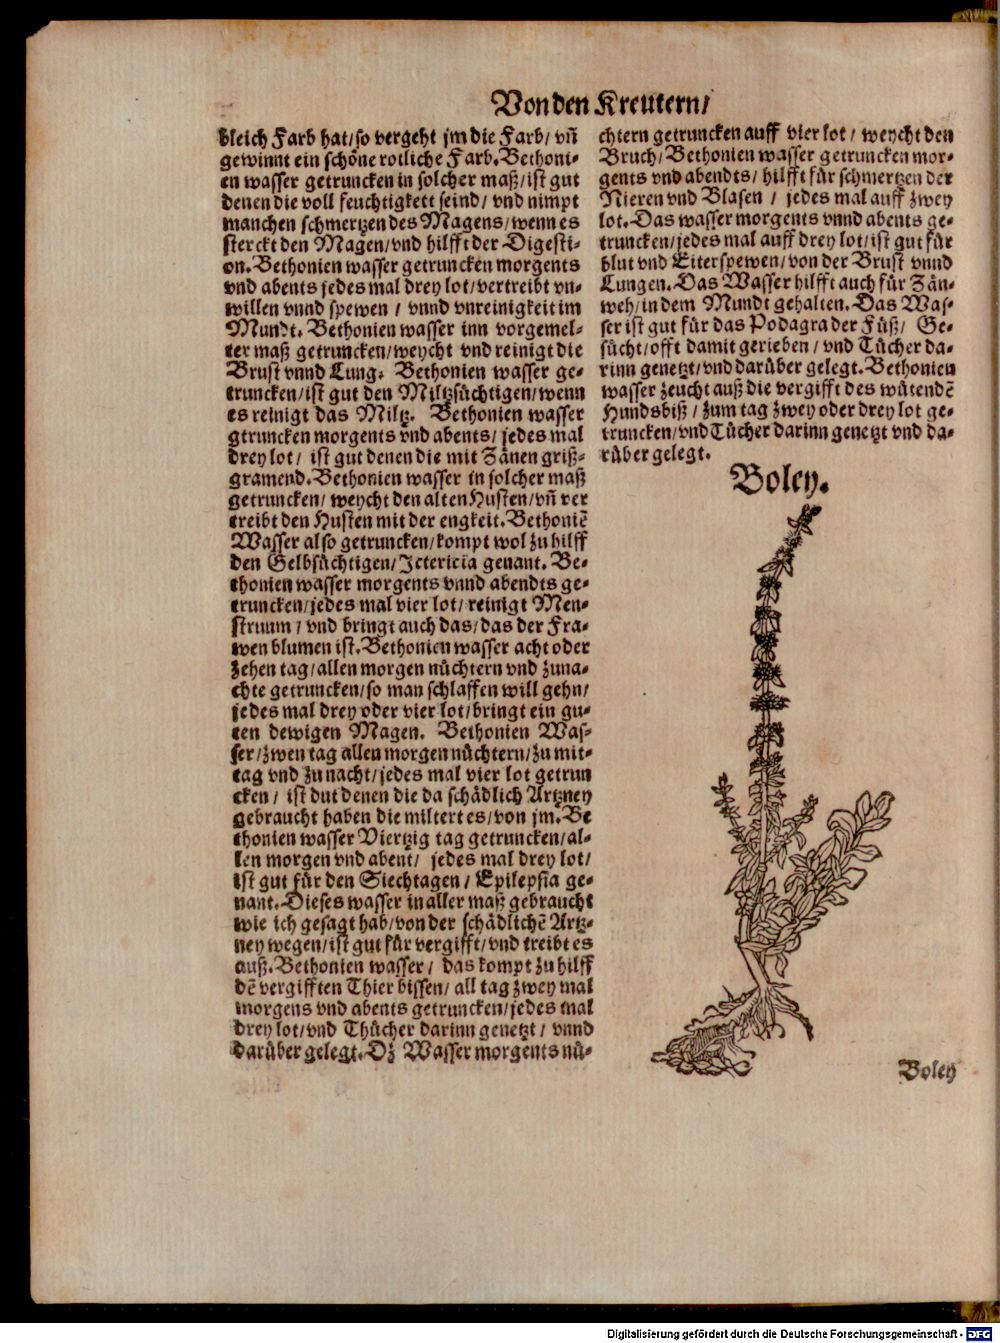 Von den Kreutern/
bleich Farb hat/so vergeht jm die Farb/ vñ
gewinnt ein schöne rotliche Farb. Bethoni-
en wasser getruncken in solcher maß/ist gut
denen die voll feuchtigkett seind/ vnd nimpt
manchen schmertzen des Magens/wenn es
sterckt den Magen/vnd hilfft der Digesti-
on. Bethonien wasser getruncken morgents
vnd abents jedes mal drey lot/vertreibt vn-
willen vnnd spewen / vnnd vnreinigkeit im
Mundt. Bethonien wasser inn vorgemel-
ter maß getruncken/weycht vnd reinigt die
Brust vnnd Lung. Bethonien wasser ge-
truncken/ist gut den Miltzsüchtigen/wenn
es reinigt das Miltz. Bethonien wasser
gtruncken morgents vnd abents/ jedes mal
drey lot/ ist gut denen die mit Zänen griß-
gramend. Bethonien wasser in solcher maß
getruncken/ weycht den alten Husten/vñ ver
treibt den Husten mit der engkeit. Bethoniē
Wasser also getruncken/kompt wol zu hilff
den Gelbsüchtigen/Ictericia genant. Be-
thonien wasser morgents vnnd abendts ge-
truncken/jedes mal vier lot/ reinigt Men-
struum / vnd bringt auch das/das der Fra-
wen blumen ist. Bethonien wasser acht oder
zehen tag/allen morgen nüchtern vnd zuna-
chte getruncken/so man schlaffen will gehn/
jedes mal drey oder vier lot/bringt ein gu-
ten dewigen Magen. Bethonien Was-
ser/zwen tag allen morgen nüchtern/zu mit-
tag vnd zu nacht/jedes mal vier lot getrun
cken / ist dut denen die da schädlich Artzney
gebraucht haben die miltert es/von jm. Be
thonien wasser Viertzig tag getruncken/al-
len morgen vnd abent/ jedes mal drey lot/
ist gut für den Siechtagen / Epilepsia ge-
nant. Dieses wasser in aller maß gebraucht
wie ich gesagt hab/von der schädlichē Artz-
ney wegen/ist gut für vergifft/vnd treibt es
auß. Bethonien wasser / das kompt zu hilff
dē vergifften Thier bissen/ all tag zwey mal
morgens vnd abents getruncken/jedes mal
drey lot/vnd Thücher darinn genetzt / vnnd
darüber gelegt. Dz Wasser morgents nü-
chtern getruncken auff vier lot / weycht den
Bruch/Bethonien wasser getruncken mor-
gents vnd abendts/ hilfft für schmertzen der
Nieren vnd Blasen / jedes mal auff zwey
lot. Das wasser morgents vnnd abents ge-
truncken/jedes mal auff drey lot/ist gut für
blut vnd Eiterspewen/von der Brust vnnd
Lungen. Das Wasser hilfft auch für Zän-
weh/in dem Mundt gehalten. Das Was-
ser ist gut für das Podagra der Füß/ Ge-
sücht/offt damit gerieben / vnd Tücher da-
rinn genetzt/vnd darüber gelegt. Bethonien
wasser zeucht auß die vergifft des wütendē
Hundsbiß / zum tag zwey oder drey lot ge-
truncken/vnd Tücher darinn genetzt vnd da-
rüber gelegt.
Boley.
Boley
Digitalisierung gefördert durch die Deutsche Forschungsgemeinschaft - DFG